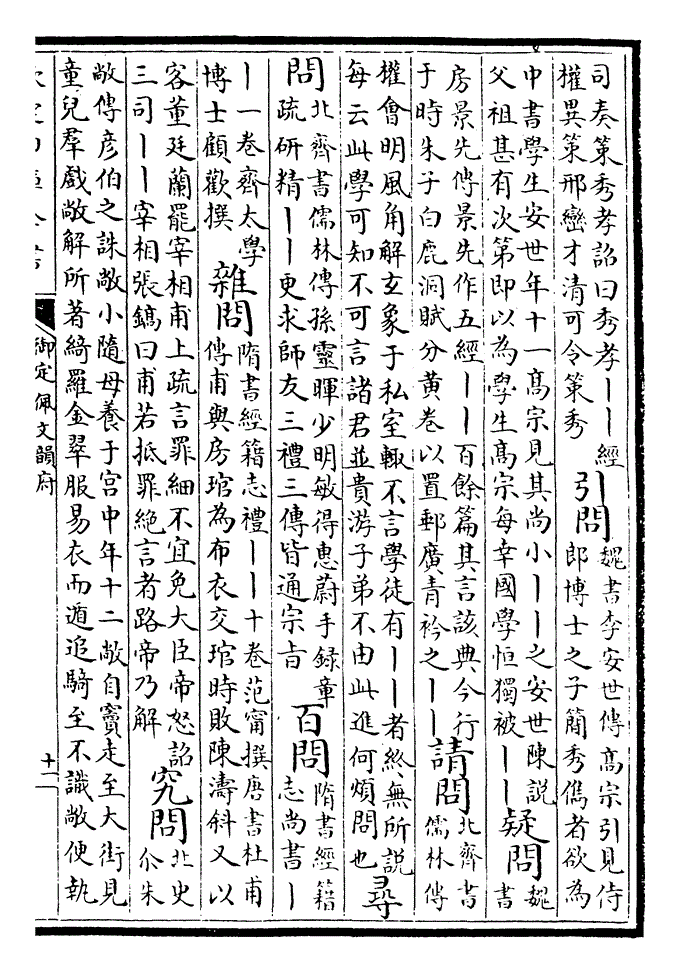 司奏策秀孝詔曰秀孝丨丨經
權異策邢巒才清可令策秀
引問
魏書李安世傳高宗引見侍
郎博士之子簡秀儁者欲為
中書學生安世年十一高宗見其尚小丨丨之安世陳說
父祖甚有次第即以為學生高宗每幸國學恒獨被丨丨
疑問
魏
書
房景先傳景先作五經丨丨百餘篇其言該典今行
于時朱子白鹿洞賦分黄卷以置郵廣青衿之丨丨
請問
北齊書
儒林傳
權會明風角解玄象于私室輒不言學徒有丨丨者終無所說
每云此學可知不可言諸君並貴游子弟不由此進何煩問也
尋
問
北齊書儒林傳孫靈暉少明敏得惠蔚手録章
疏研精丨丨更求師友三禮三傳皆通宗旨
百問
隋書經籍
志尚書丨
丨一卷齊太學
博士顧歡撰
雜問
隋書經籍志禮丨丨十卷范甯撰唐書杜甫
傳甫與房琯為布衣交琯時敗陳濤斜又以
客董廷蘭罷宰相甫上疏言罪細不宜免大臣帝怒詔
三司丨丨宰相張鎬曰甫若抵罪絶言者路帝乃解
究問
北史
尒朱
敞傳彦伯之誅敞小隨母養于宫中年十二敞自竇走至大街見
童兒羣戲敞解所著綺羅金翠服易衣而遁追騎至不識敞便執
御定佩文韻府
十一